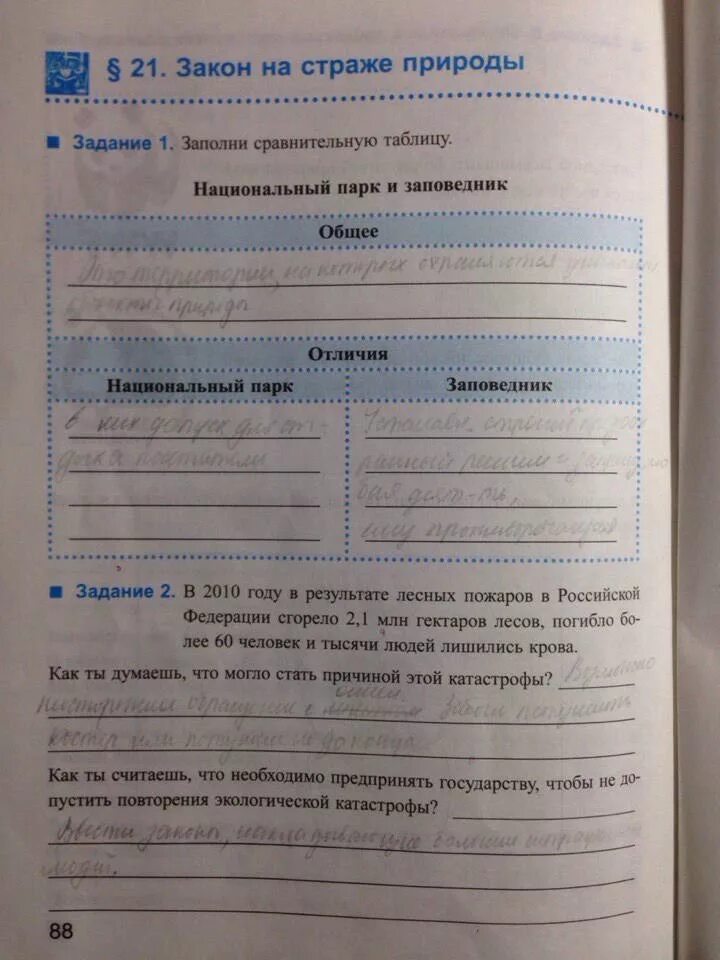 § 21. Закон на страже природы
Задание 1. Заполни сравнительную таблицу.
Национальный парк и заповедник
Общее
Это территории, на которых охраняются
природы
Отличия
Национальный парк Заповедник
в них допуск для от-
дыха посетители
строгий
режим и
бая деят-ть,
противоречащая
Задание 2. В 2010 году в результате лесных пожаров в Российской
Федерации сгорело 2,1 млн гектаров лесов, погибло бо-
лее 60 человек и тысячи людей лишились крова.
Как ты думаешь, что могло стать причиной этой катастрофы? Возможно
обращении с огнём. Забыли потушить
костёр или потушили не до конца
Как ты считаешь, что необходимо предпринять государству, чтобы не до-
пустить повторения экологической катастрофы?
Ввести законы, накладывающие большие
людей.
88